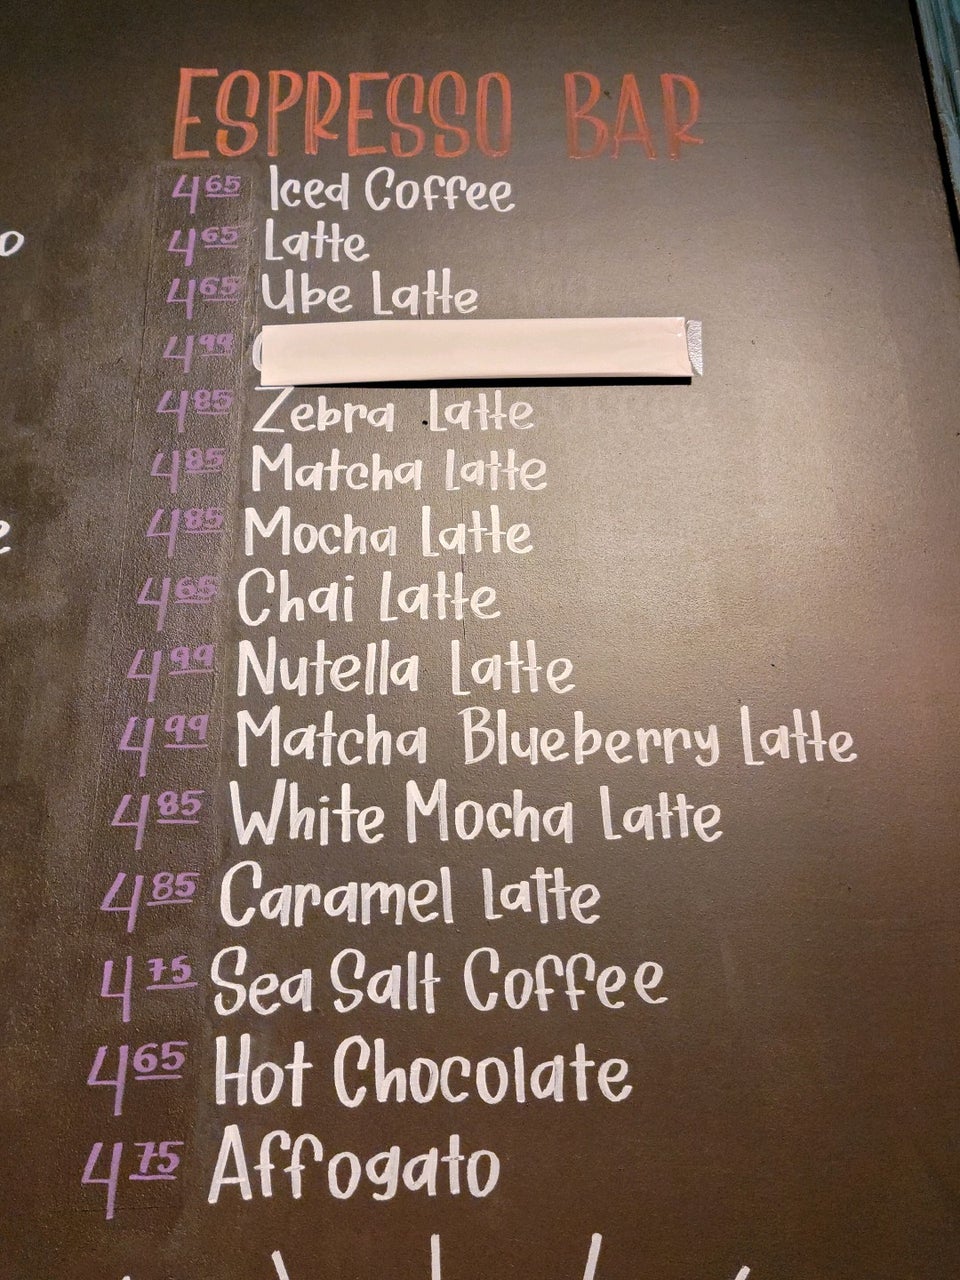 ESPRESSO BAR
4.65 Iced Coffee
4.65 Latte
4.65 Ube Latte
4.99
4.85 Zebra Latte
4.85 Matcha Latte
4.85 Mocha Latte
4.65 Chai Latte
4.99 Nutella Latte
4.99 Matcha Blueberry Latte
4.85 White Mocha Latte
4.85 Caramel Latte
4.75 Sea Salt Coffee
4.65 Hot Chocolate
4.75 Affogato